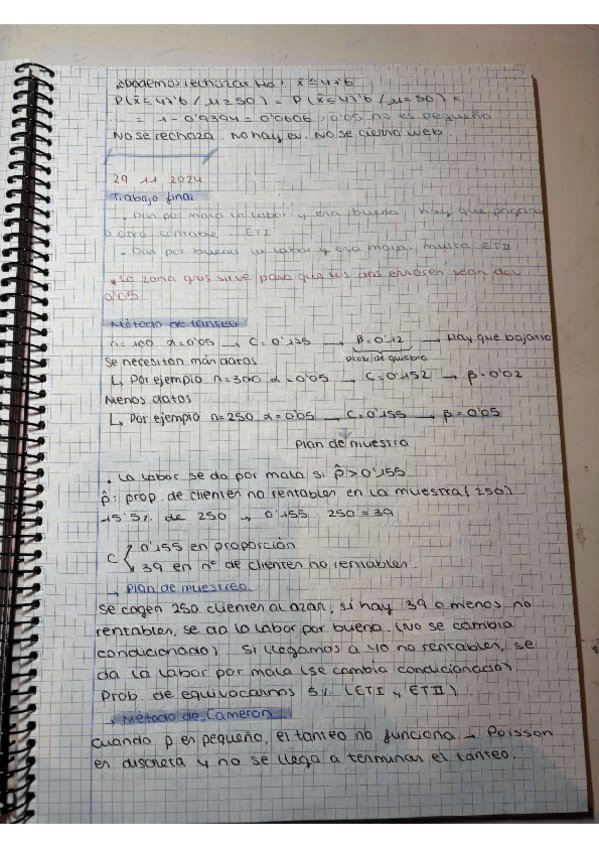 ¿Podemos rechazar Ho? x̄ ≤ 47'6
P(x̄ ≤ 47'6 / μ = 50) = P(x̄ ≤ 47'6 / μ = 50) =
= 1 - 0'9394 = 0'0606 > 0'05 no es pequeño
No se rechaza. No hay ev. No se cierra web.
29 11 2024
Trabajo final
. Dan por mala la labor y era buena. Hay que pagar
a otro contable ETI
. Dan por buena la labor y era mala. multa, ETII
. La zona gris sirve para que los dos errores sean
0'05
Método de tanteo
n = 100 α = 0'05 → C = 0'175 → β = 0'12 → Hay que bajarlo
Se necesitan más datos prob. de quiebra
↳ Por ejemplo n = 300 α = 0'05 → C = 0'152 → β = 0'02
Menos datos
↳ Por ejemplo n = 250 α = 0'05 → C = 0'155 → β = 0'05
↓
Plan de muestra
. La labor se da por mala si p̂ > 0'155
p̂: prop. de clientes no rentables en la muestra (250)
15'5% de 250 → 0'155 · 250 = 39
C { 0'155 en proporción
39 en nº de clientes no rentables.
→ Plan de muestreo
Se cogen 250 clientes al azar, si hay 39 o menos no
rentables, se da la labor por buena. (No se cambia
condicionado) Si llegamos a 40 no rentables, se
da la labor por mala (se cambia condicionado)
Prob. de equivocarnos 5% (ETI y ETII)
. Método de Cameron
Cuando p es pequeño, el tanteo no funciona → Poisson
es discreta y no se llega a terminar el tanteo.